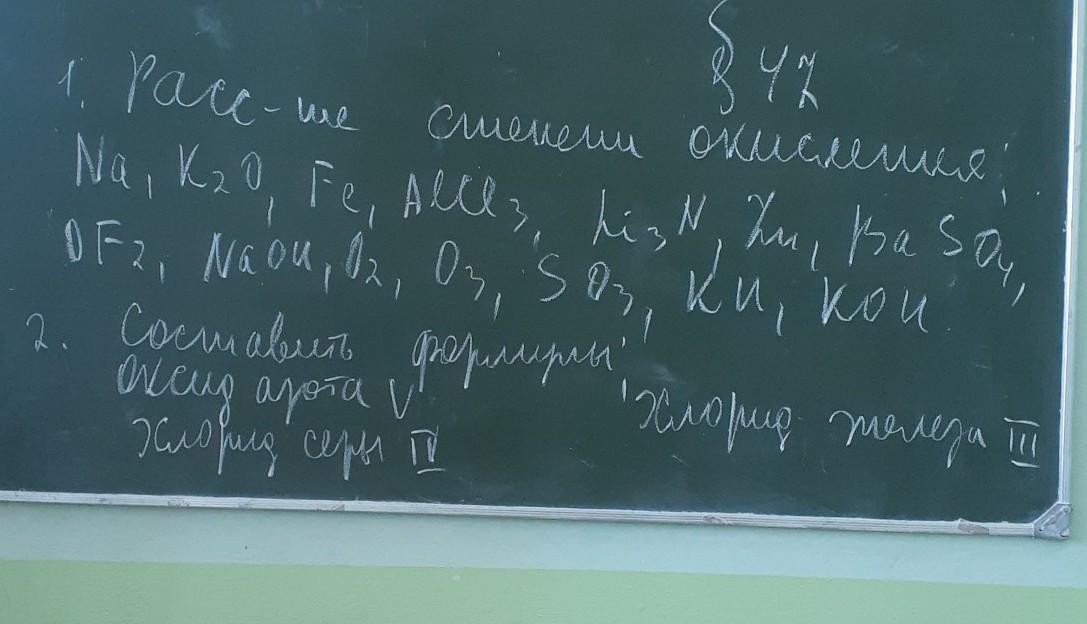 § 47
1. Расс-ше степени окисления:
Na, K₂O, Fe, AlCl₃, Li₃N, Zn, BaSO₄,
OF₂, NaOH, O₂, O₃, SO₃, KH, KOH
2. Составить формулы:
Оксид азота V, Хлорид железа III
Хлорид серы IV